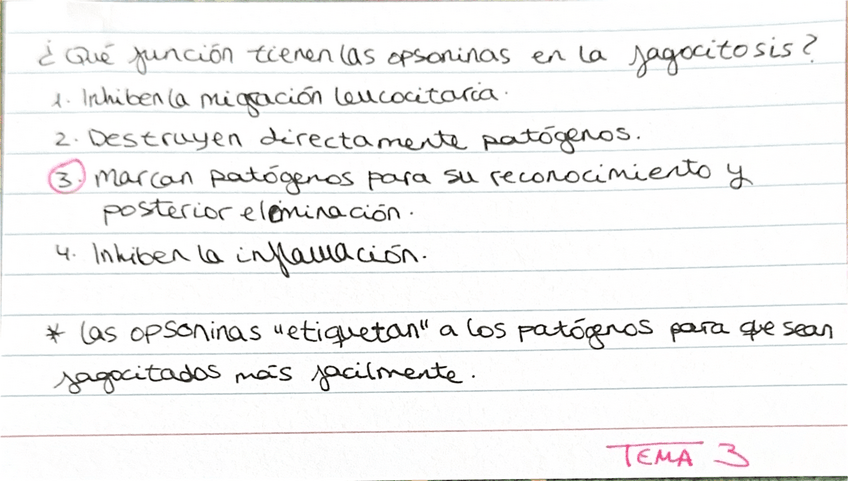 ¿Qué función tienen las opsoninas en la fagocitosis?
1. Inhiben la migración leucocitaria.
2. Destruyen directamente patógenos.
3. Marcan patógenos para su reconocimiento y
posterior eliminación.
4. Inhiben la inflamación.
* Las opsoninas "etiquetan" a los patógenos para que sean
fagocitados más facilmente.
TEMA 3